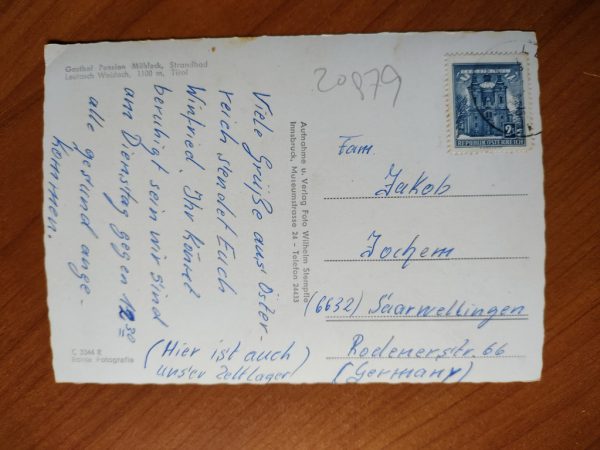 Gasthof Pension Mühleck, Strandbad
Leutasch Weidach, 1100 m, Tirol
Viele Grüße aus Öster-
reich sendet Euch
Winfried. Ihr könnt
beruhigt sein wir sind
am Dienstag gegen 12 30
alle gesund ange-
kommen.
(Hier ist auch
unser Zeltlager)
C 3344 R
Echte Fotografie
Aufnahme u. Verlag Foto Wilhelm Stempfle
Innsbruck, Museumstrasse 24 - Telefon 24433
20879
REPUBLIK ÖSTERREICH
Fam.
Jakob
Jochem
(6632) Saarwellingen
Rodenerstr. 66
(Germany)